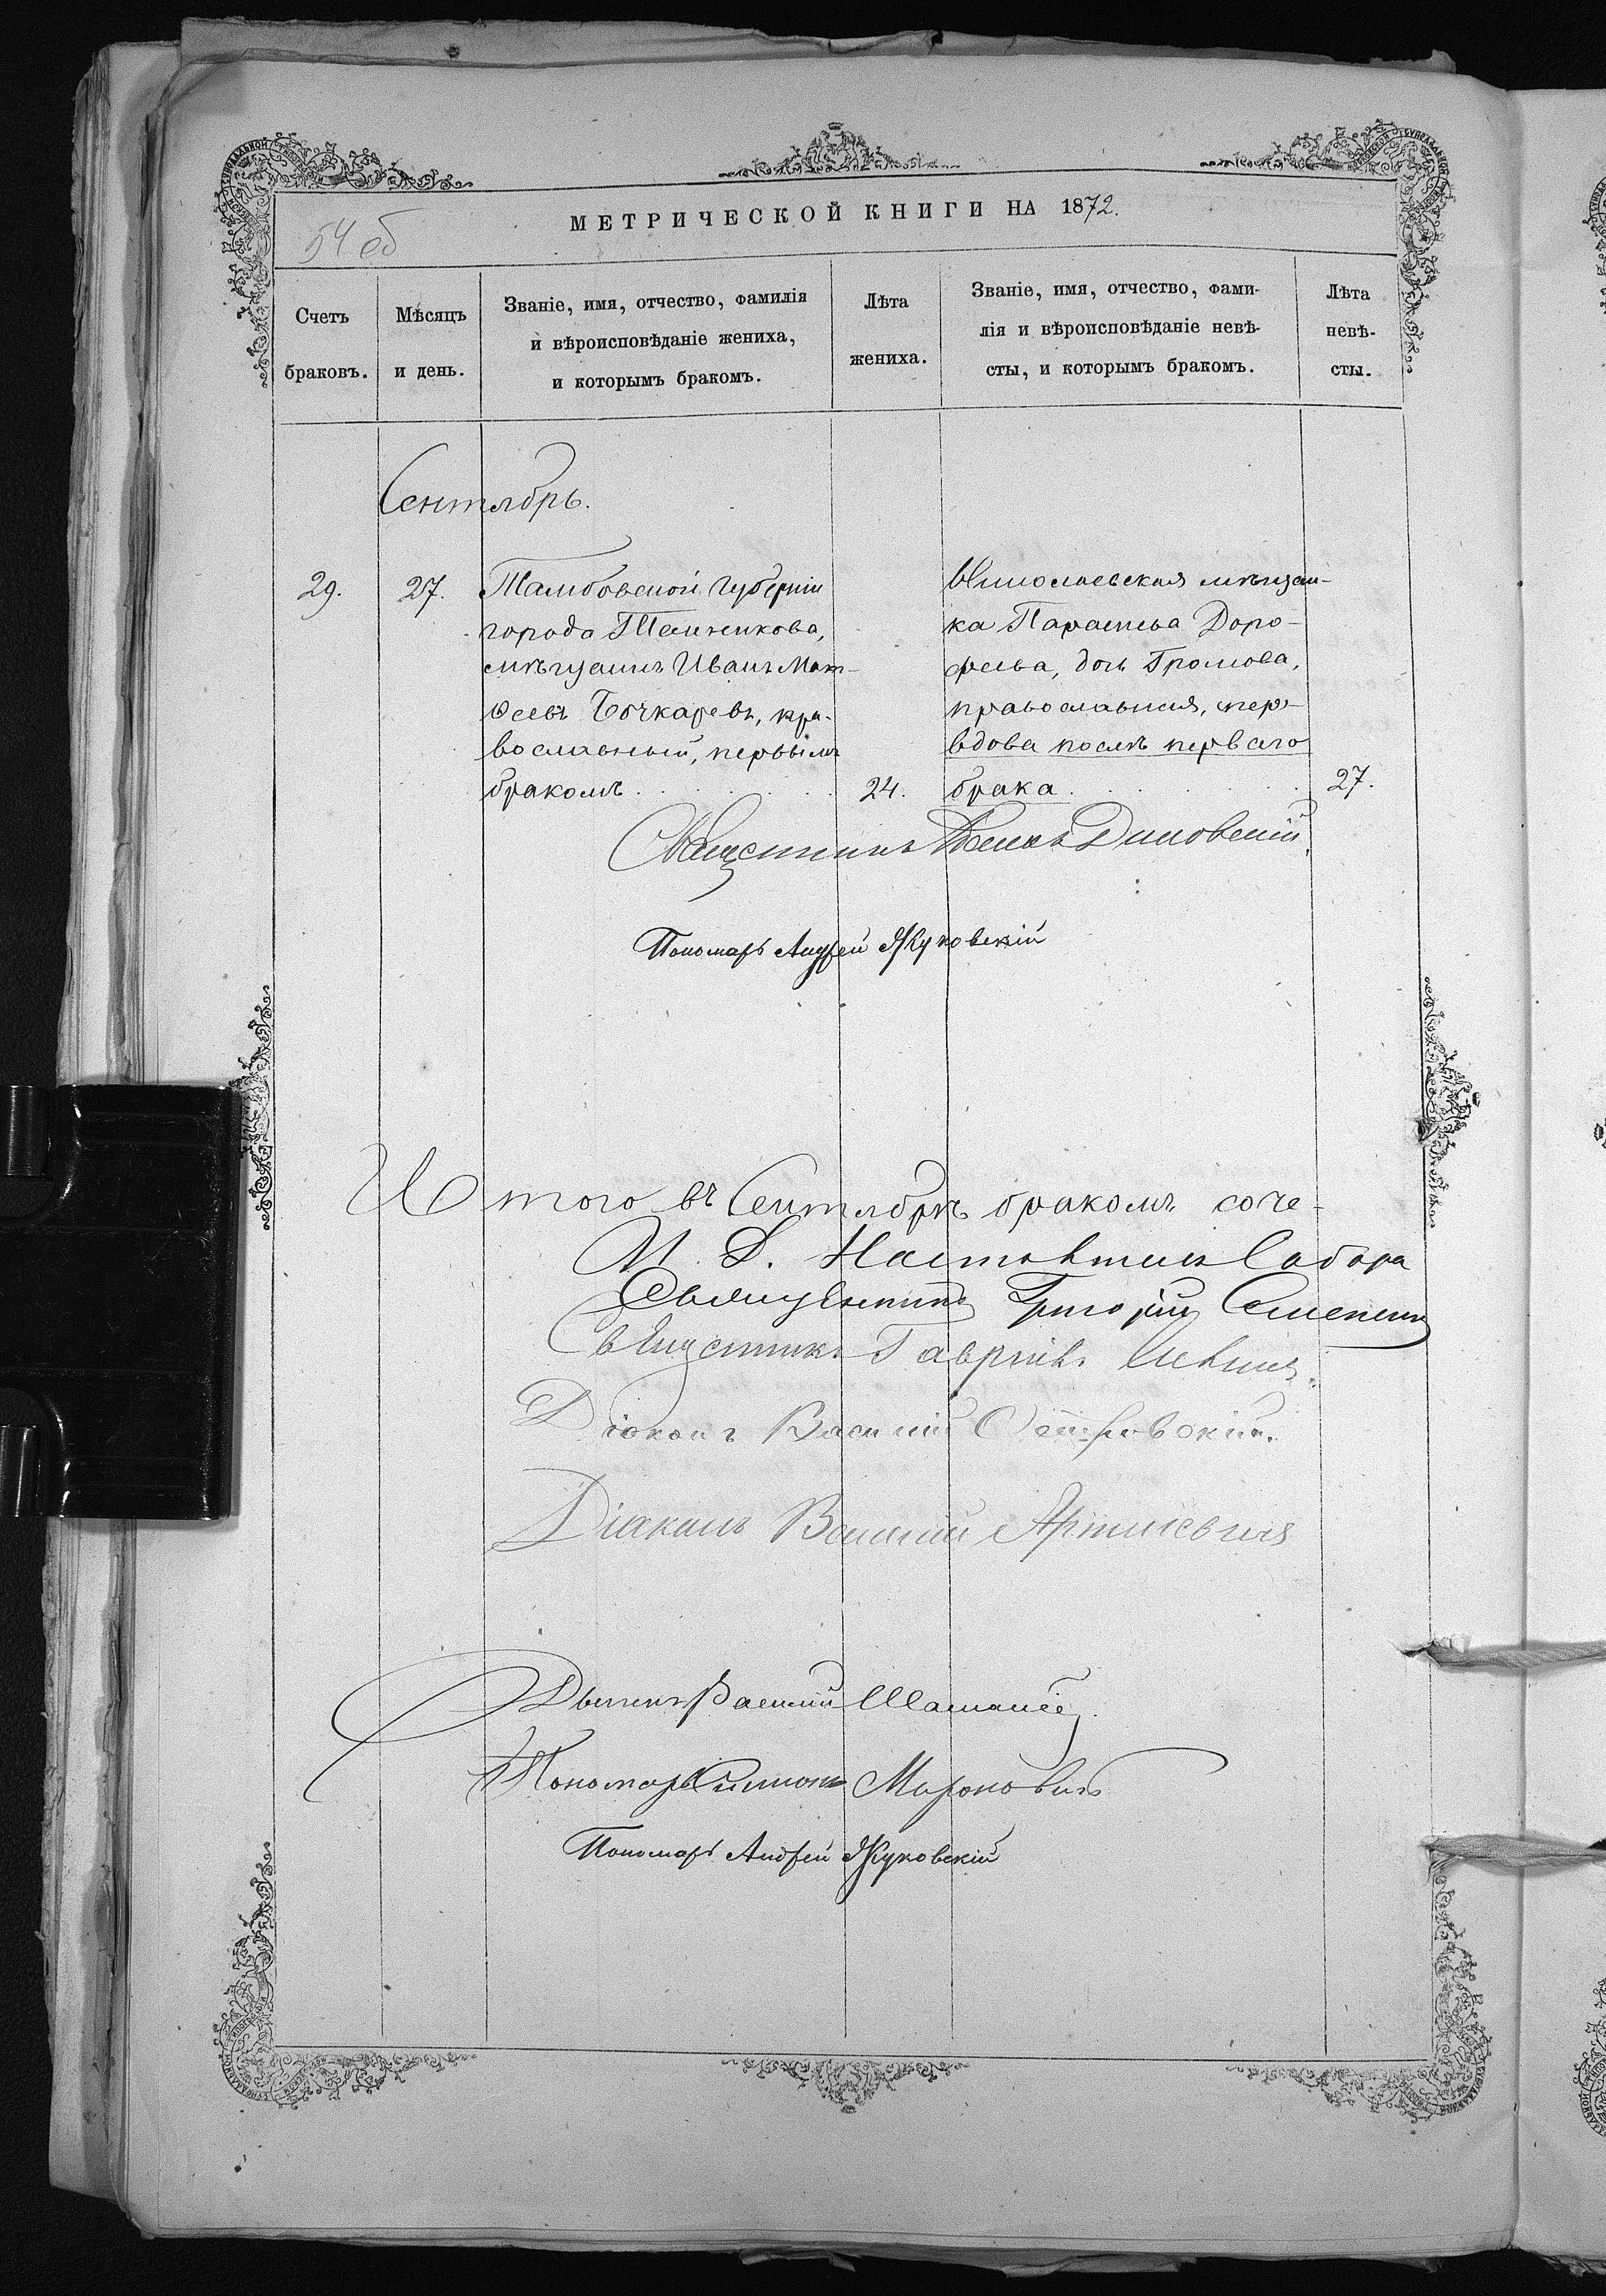 МЕТРИЧЕСКОЙ КНИГИ НА 1872.
54 об
Счетъ браковъ.
Мѣсяцъ и день.
Званіе, имя, отчество, фамилія
и вѣроисповѣданіе жениха,
и которымъ бракомъ.
Лѣта жениха.
Званіе, имя, отчество, фами-
лія и вѣроисповѣданіе невѣ-
сты, и которымъ бракомъ.
Лѣта невѣ-
сты.
Сентябрь.
29.
27.
Тамбовской губерніи
города Темникова,
мѣщанинъ Иванъ Мат-
ѳеевъ Бочкаревъ, пра-
вославный, первымъ
бракомъ
24.
Николаевская мѣщан-
ка Параскева Доро-
феева, дочь Громова,
православная,
вдова послѣ перваго
брака
27.
Священникъ
Пономарь Андрей Жуковскій
Итого въ Сентябрѣ бракомъ соче-
И. Д. Настоятеля Собора
Священникъ Григорій
Священникъ Гавріилъ
Діаконъ Василій
Діаконъ Василій
Василій
Пономарь Мироновичъ
Пономарь Андрей Жуковскій